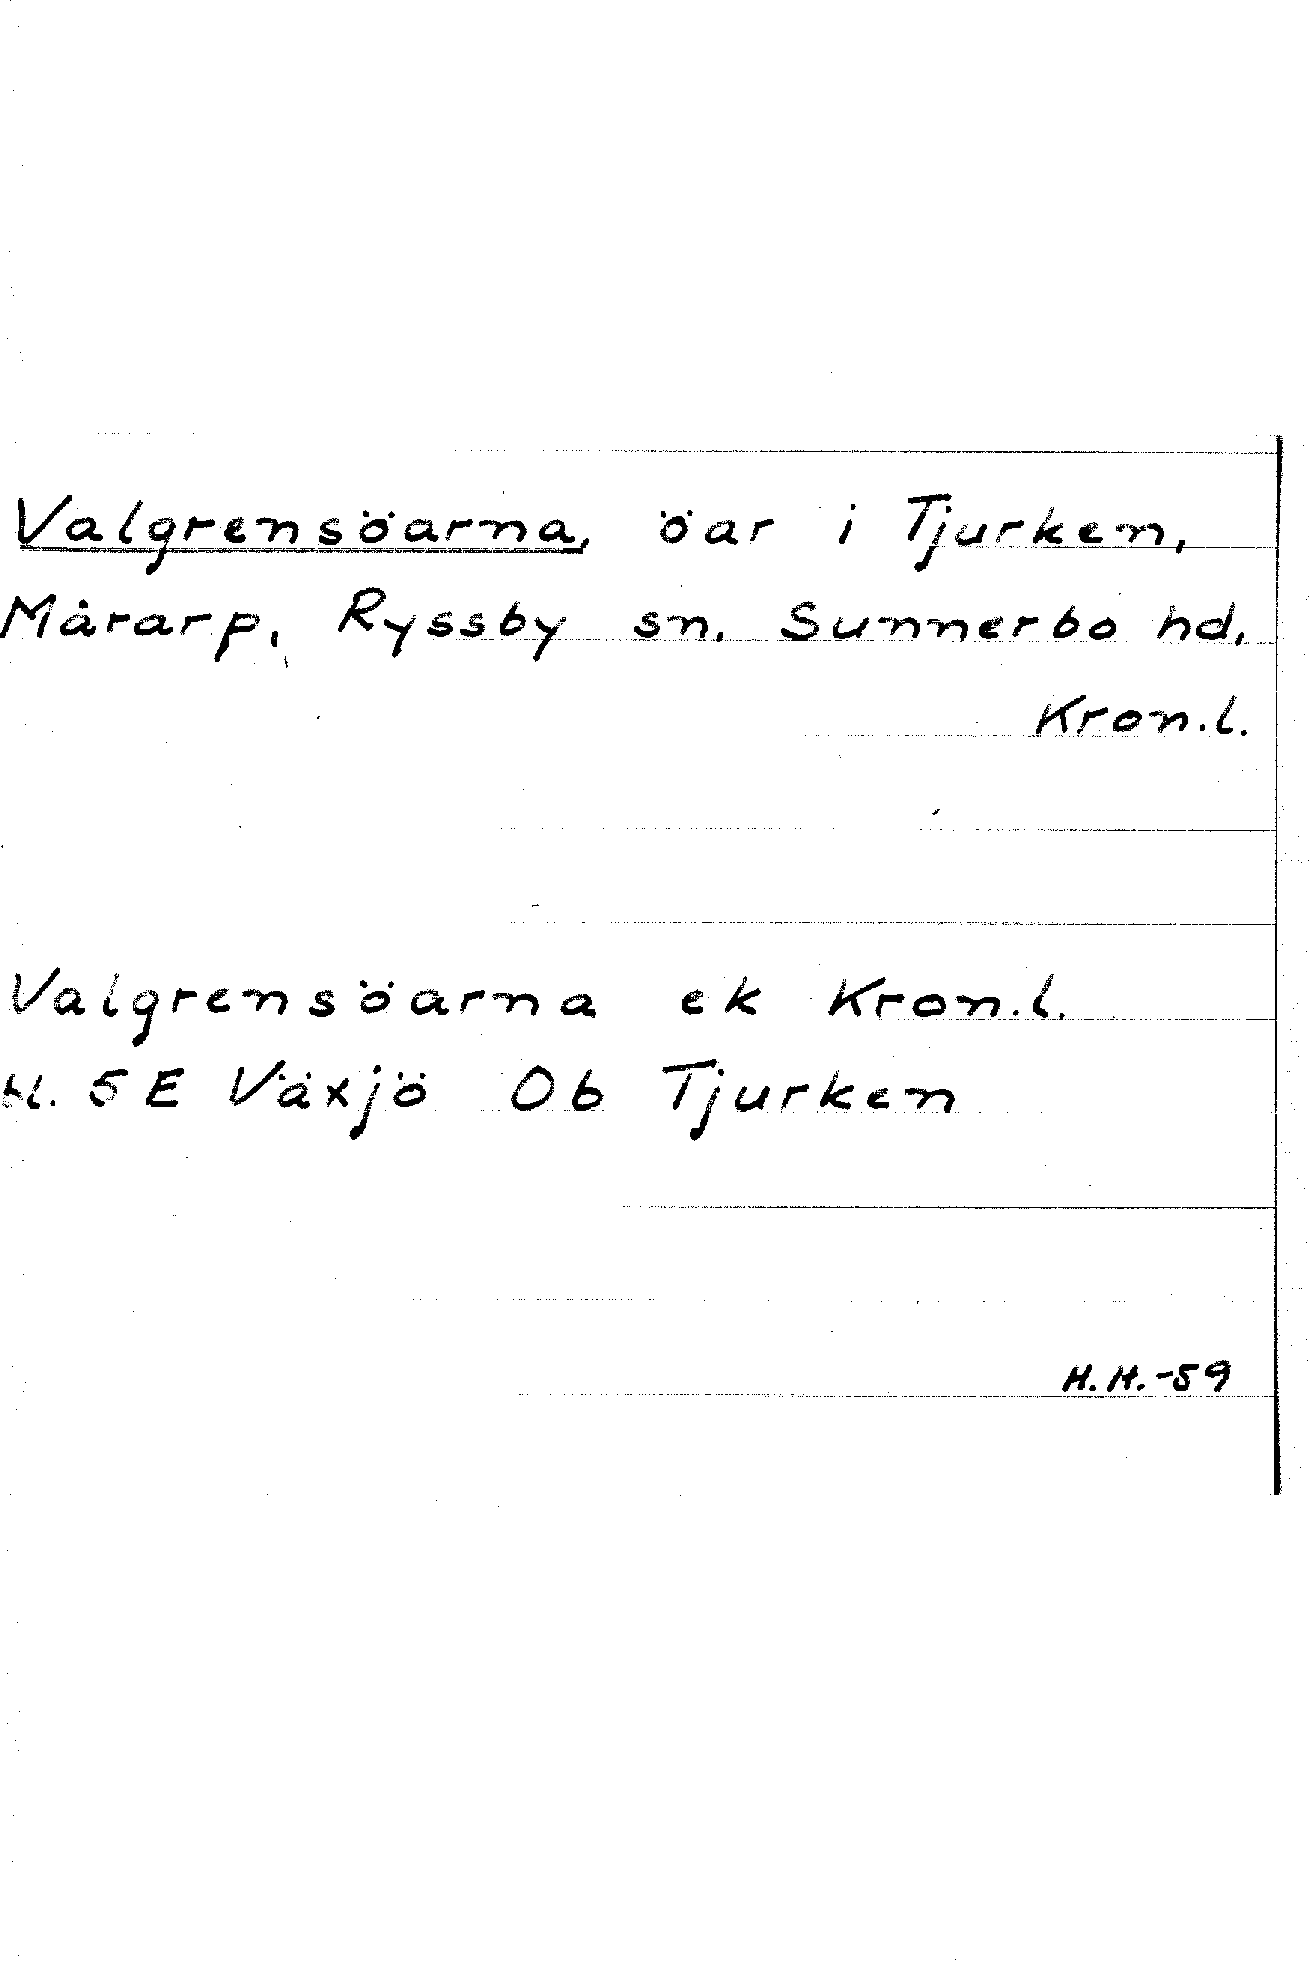 Valgrensöarna, öar i Tjurken,
Mårarp, Ryssby sn. Sunnerbo hd,
Kron.l.
Valgrensöarna ek Kron.l.
bl. 5E Växjö Ob Tjurken
H.H.-59